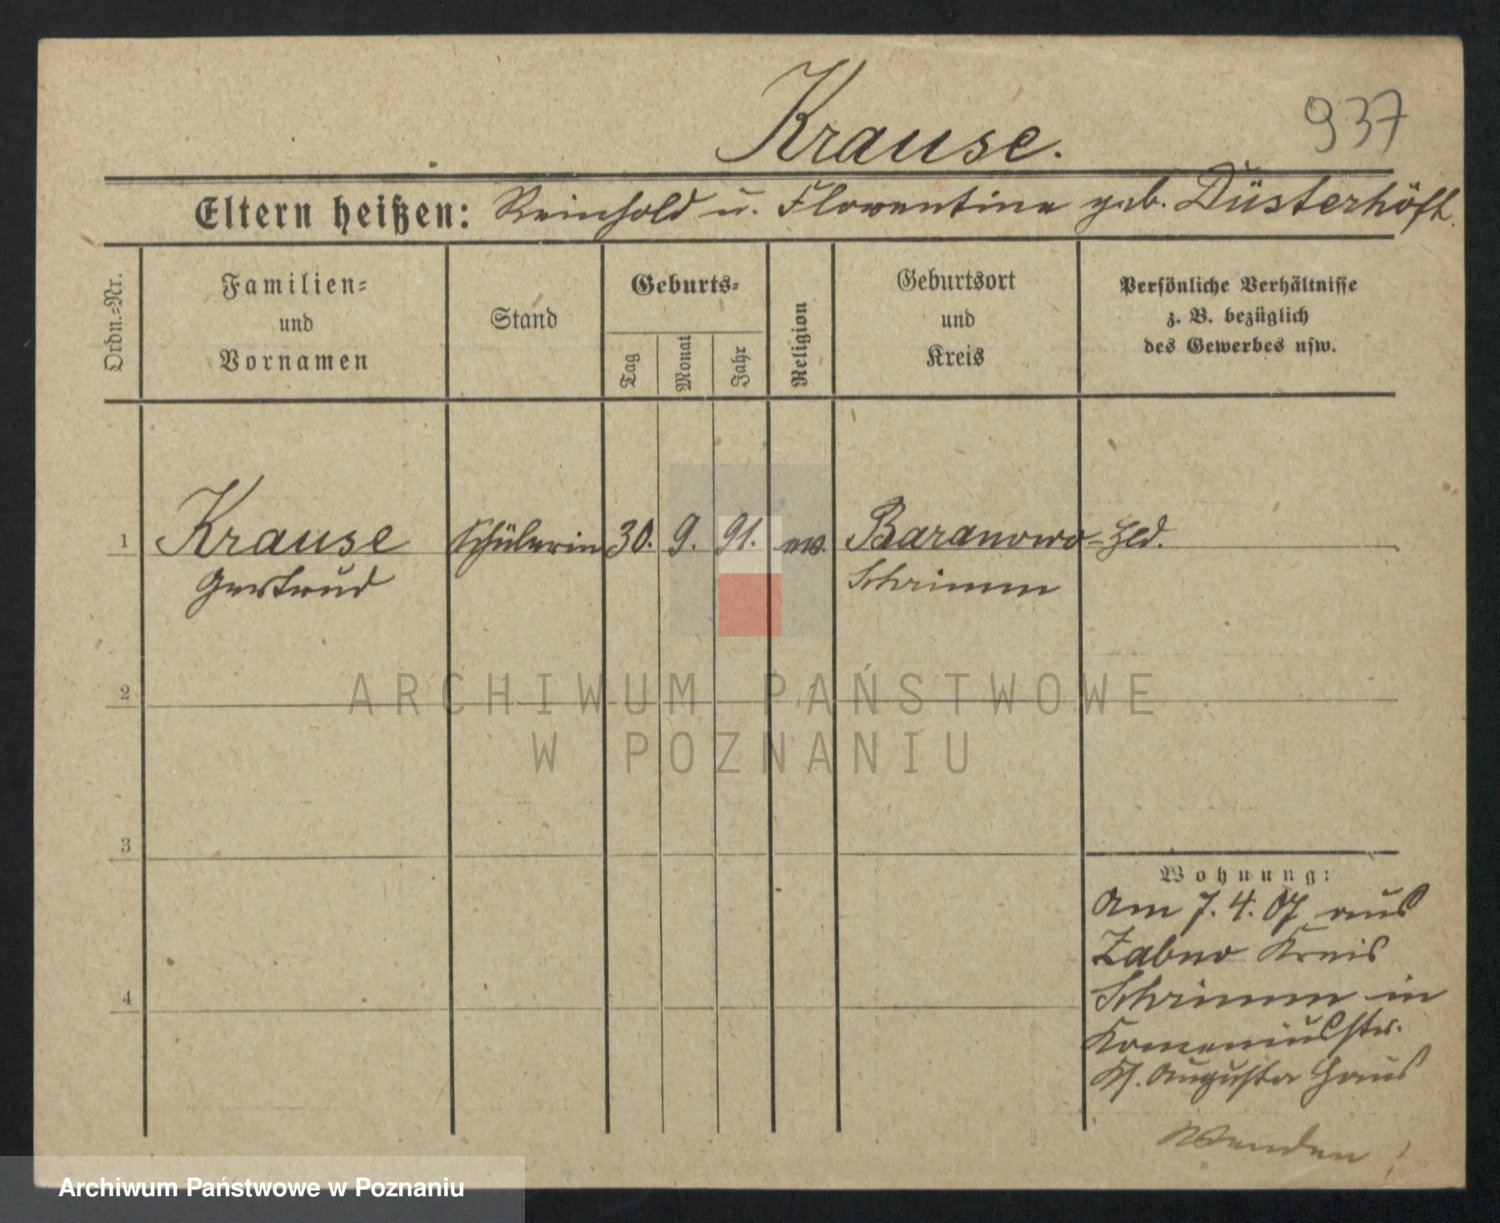 Krause.
937
Eltern heißen: Reinhold u. Florentine geb. Düsterhöft.
Ordn.-Nr.
Familien-
und
Vornamen
Stand
Geburts-
Tag
Monat
Jahr
Religion
Geburtsort
und
Kreis
Persönliche Verhältnisse
z. B. bezüglich
des Gewerbes usw.
1 Krause Schülerin 30. 9. 91. ev. Baranowo- Hld.
Gertrud Schrimm
2
ARCHIWUM PAŃSTWOWE
W POZNANIU
3
Wohnung:
Am 7. 4. 07 aus
Zabno Kreis
4
Schrimm in
Komeniusstr.
Augusta Haus
Wenden!
Archiwum Państwowe w Poznaniu